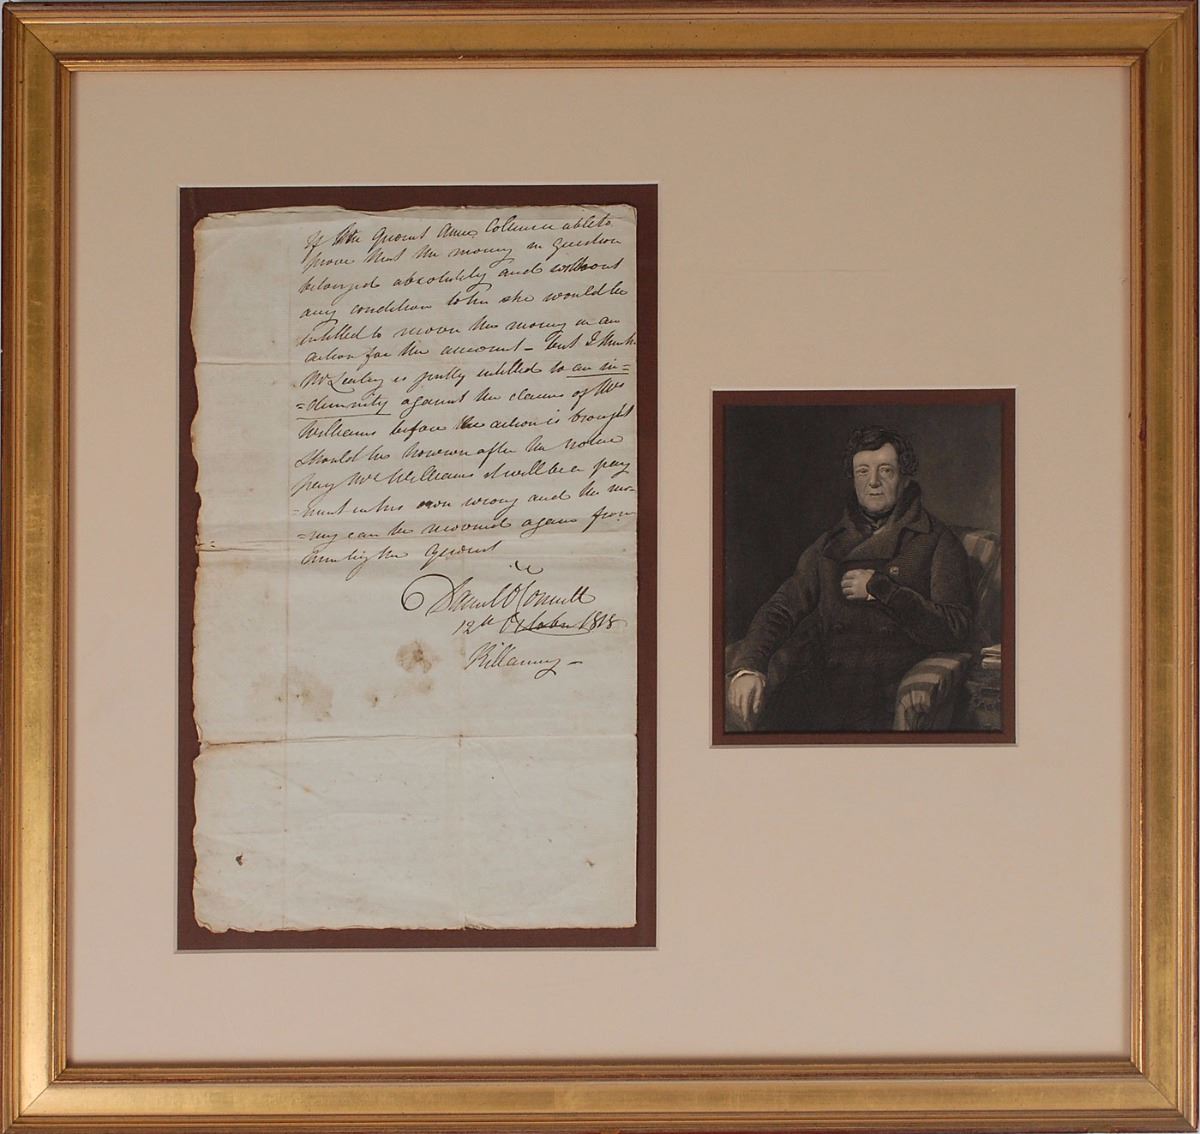 If the Querist Anne Collins is able to
prove that the money in question
belonged absolutely and without
any condition to her she would be
intitled to recover the money in an
action for the amount – but I think
Mr Lealy is justly intitled to an in=
=demnity against the claims of Mrs
Williams before the action is brought
should he however after the notice
pay Mrs Williams it will be a pay
=ment in his own wrong and the mo=
=ney can be recovered again from
him by the Querist
Daniel O'Connell
12th October 1818
Killarney –